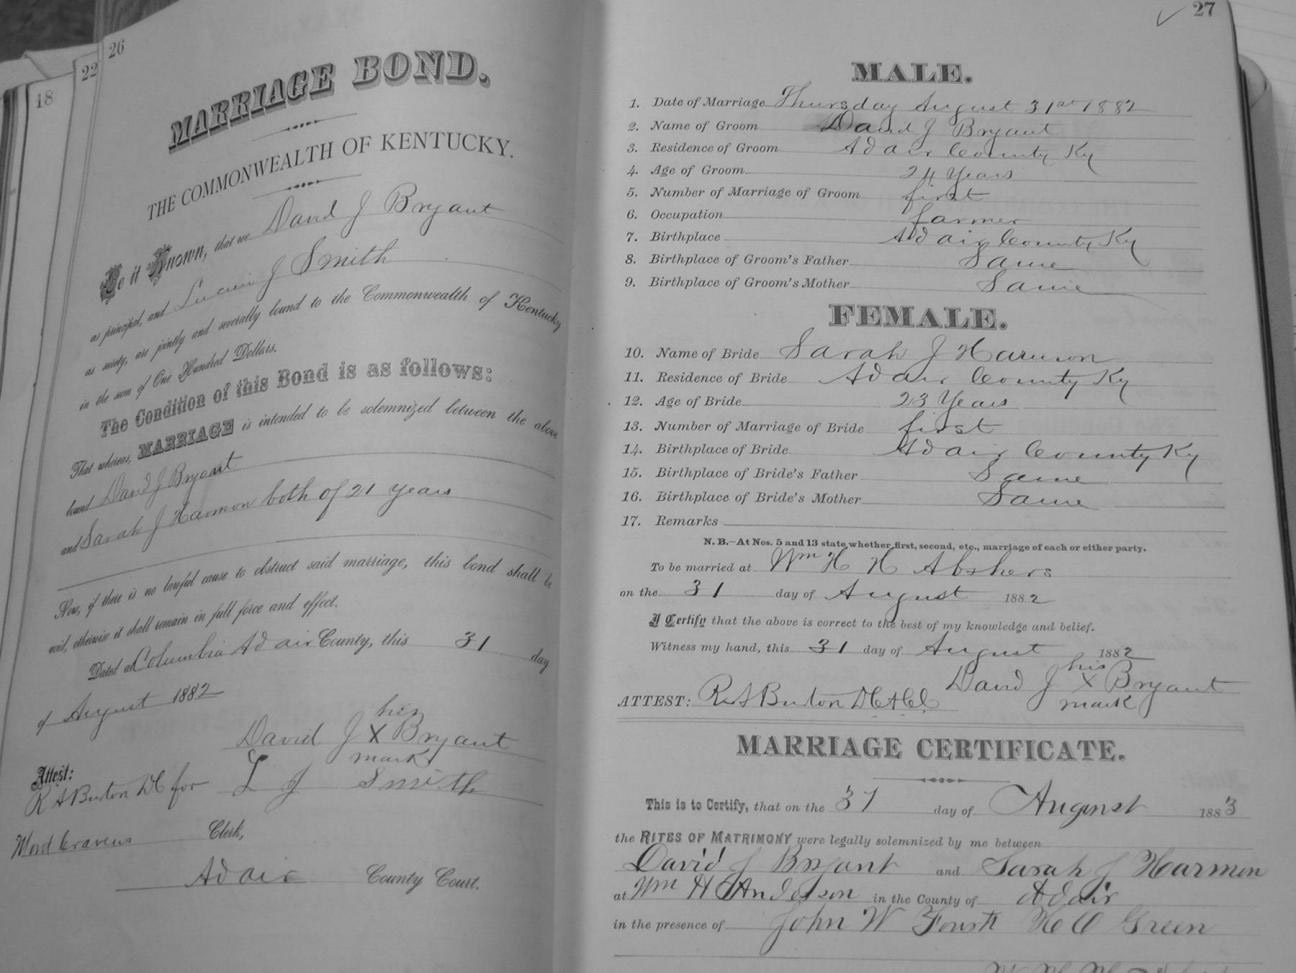 18
22
26
MARRIAGE BOND.
THE COMMONWEALTH OF KENTUCKY.
Be it Known, that we David J Bryant
as principal, and J Smith
as surety, are jointly and severally bound to the Commonwealth of Kentucky
in the sum of One Hundred Dollars.
The Condition of this Bond is as follows:
That whereas, MARRIAGE is intended to be solemnized between the above
bound David J Bryant
and Sarah J Harmon both of 21 years
Now, if there is no lawful cause to obstruct said marriage, this bond shall be
void, otherwise it shall remain in full force and effect.
Dated at Columbia Adair County, this 31 day
of August 1882
his
David J X Bryant
mark
Attest: L J Smith
R A Burton DC for
Word Cravens Clerk,
Adair County Court.
27
MALE.
1. Date of Marriage Thursday August 31st 1882
2. Name of Groom David J Bryant
3. Residence of Groom Adair County Ky
4. Age of Groom 24 Years
5. Number of Marriage of Groom first
6. Occupation farmer
7. Birthplace Adair County Ky
8. Birthplace of Groom's Father Same
9. Birthplace of Groom's Mother Same
FEMALE.
10. Name of Bride Sarah J Harmon
11. Residence of Bride Adair County Ky
12. Age of Bride 23 Years
13. Number of Marriage of Bride first
14. Birthplace of Bride Adair County Ky
15. Birthplace of Bride's Father Same
16. Birthplace of Bride's Mother Same
17. Remarks
N. B.—At Nos. 5 and 13 state whether first, second, etc., marriage of each or either party.
To be married at Wm H H Abshers
on the 31 day of August 1882
I Certify that the above is correct to the best of my knowledge and belief.
Witness my hand, this 31 day of August 1882
his
David J X Bryant
mark
ATTEST: R A Burton
MARRIAGE CERTIFICATE.
This is to Certify, that on the 31 day of August 1883
the RITES OF MATRIMONY were legally solemnized by me between
David J Bryant and Sarah J Harmon
at Wm H Anderson in the County of Adair
in the presence of John W Green